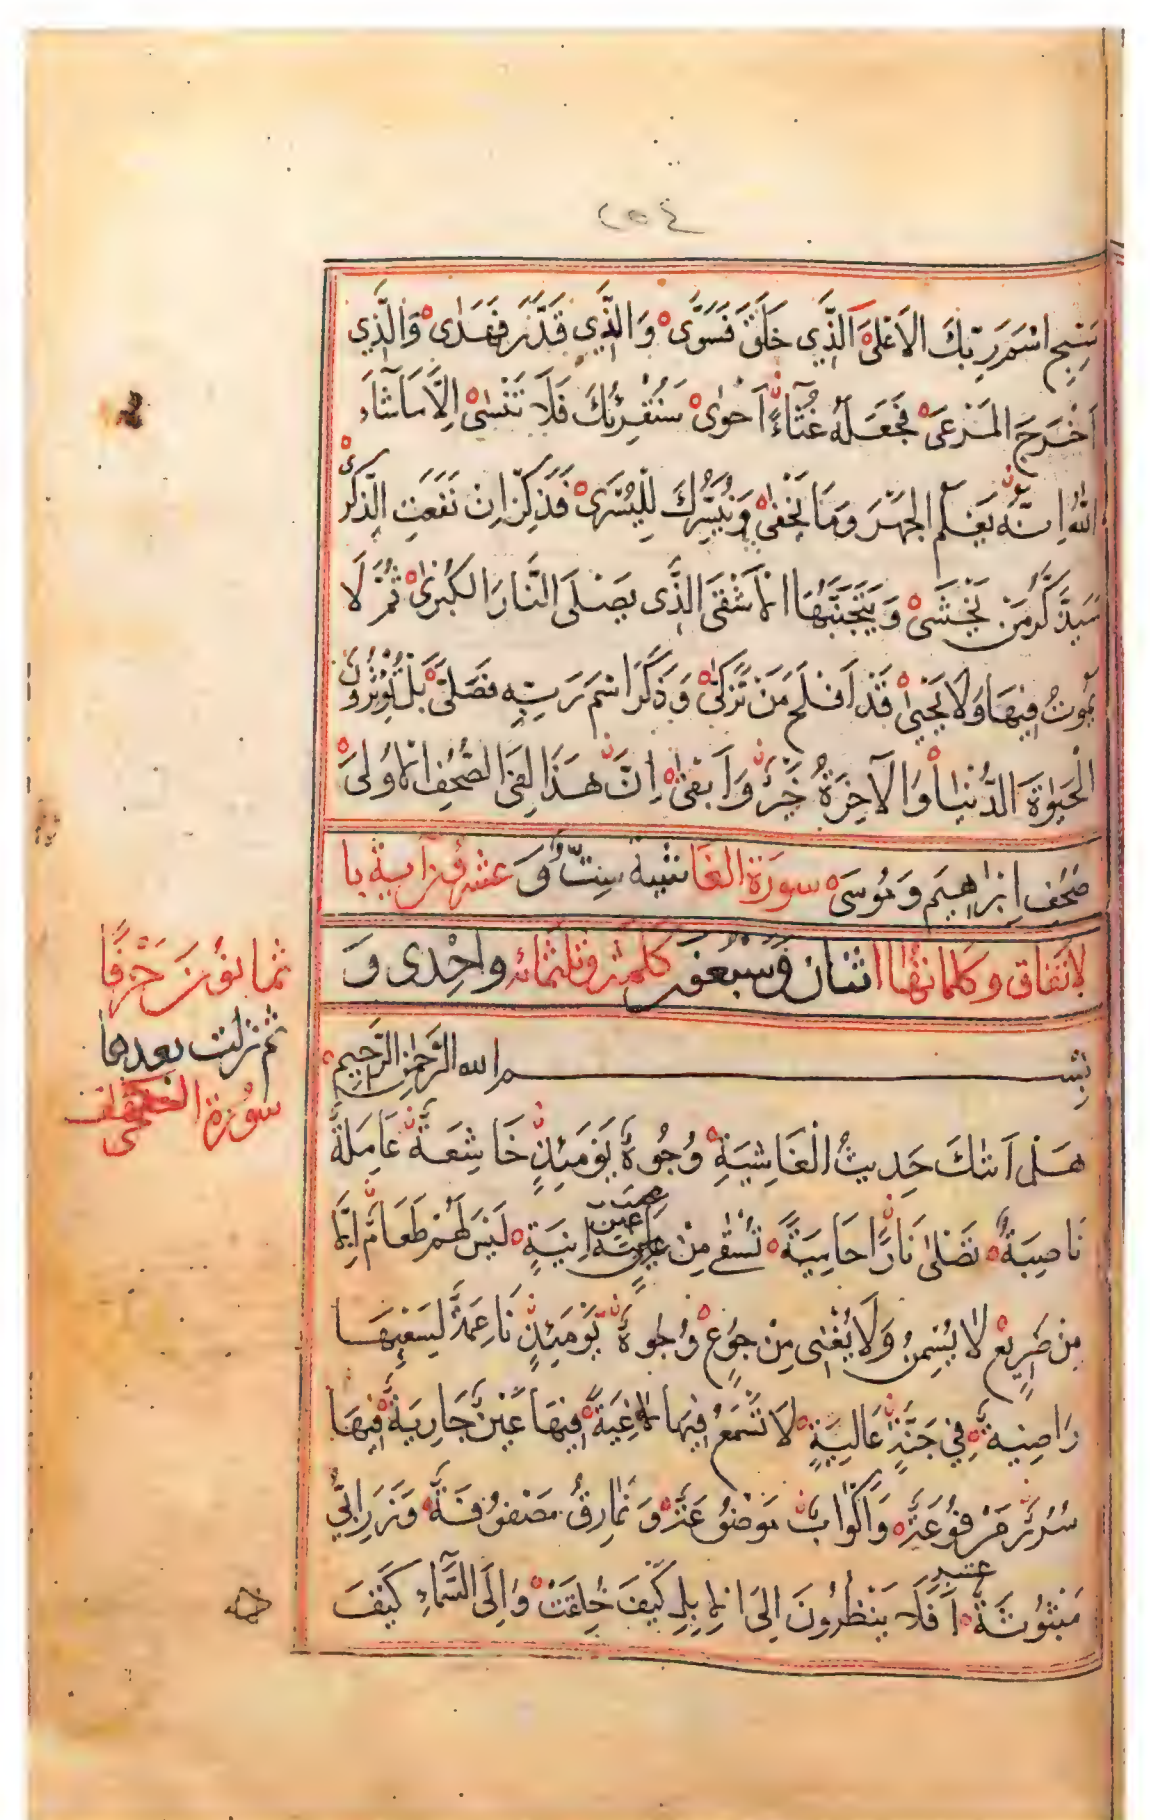 ٢٥٤
سَبِّحِ اسْمَ رَبِّكَ الْاَعْلَىٰ الَّذِي خَلَقَ فَسَوَّىٰ وَالَّذِي قَدَّرَ فَهَدَىٰ وَالَّذِي
اَخْرَجَ الْمَرْعَىٰ فَجَعَلَهُ غُثَآءً اَحْوىٰ سَنُقْرِئُكَ فَلَا تَنْسٰى اِلَّا مَا شَآءَ
اللهُ اِنَّهُ يَعْلَمُ الْجَهْرَ وَمَا يَخْفىٰ وَنُيَسِّرُكَ لِلْيُسْرَىٰ فَذَكِّرْ اِنْ نَفَعَتِ الذِّكْرىٰ
سَيَذَّكَّرُ مَنْ يَخْشَىٰ وَيَتَجَنَّبُهَا الْاَشْقَى الَّذِى يَصْلَى النَّارَ الْكُبْرىٰ ثُمَّ لَا
يَمُوتُ فِيهَا وَلَا يَحْيىٰ قَدْ اَفْلَحَ مَنْ تَزَكّىٰ وَذَكَرَ اسْمَ رَبِّهِ فَصَلّىٰ بَلْ تُؤْثِرُونَ
الْحَيٰوةَ الدُّنْيَا وَالْآخِرَةُ خَيْرٌ وَاَبْقىٰ اِنَّ هٰذَا لَفِى الصُّحُفِ الْاُولىٰ
صُحُفِ اِبْرَاهِيمَ وَمُوسَىٰ سورة الغاشية ستّ وَعشرون آية با
لاتفاق وكلماتها اثنان وسبعون كلمة وثلثمائه واحْدى وَ
ثمانون حَرْفًا
ثم نزلت بعدها
سورة الكهف
بِسْمِ الله الرَّحْمٰنِ الرَّحِيمِ
هَلْ اَتٰكَ حَدِيثُ الْغَاشِيَةِ وُجُوهٌ يَوْمَئِذٍ خَاشِعَةٌ عَامِلَةٌ
نَاصِبَةٌ تَصْلىٰ نَارًا حَامِيَةً تُسْقٰى مِنْ عَيْنٍ اٰنِيَةٍ لَيْسَ لَهُمْ طَعَامٌ اِلَّا
مِنْ ضَرِيعٍ لَا يُسْمِنُ وَلَا يُغْنِى مِنْ جُوعٍ وُجُوهٌ يَوْمَئِذٍ نَاعِمَةٌ لِسَعْيِهَا
رَاضِيَةٌ فِي جَنَّةٍ عَالِيَةٍ لَا تَسْمَعُ فِيهَا لَاغِيَةً فِيهَا عَيْنٌ جَارِيَةٌ فِيهَا
سُرُرٌ مَرْفُوعَةٌ وَاَكْوَابٌ مَوْضُوعَةٌ وَنَمَارِقُ مَصْفُوفَةٌ وَزَرَابِيُّ
مَبْثُوثَةٌ اَفَلَا يَنْظُرُونَ اِلَى الْاِبِلِ كَيْفَ خُلِقَتْ وَاِلَى السَّمَآءِ كَيْفَ